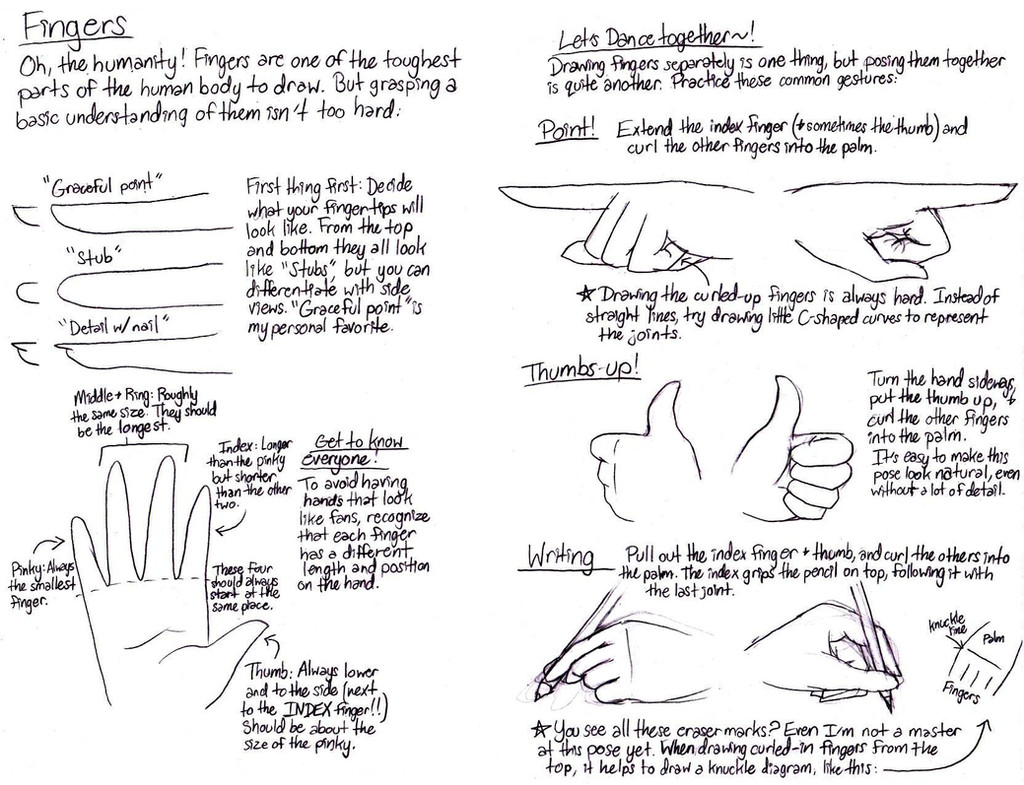 Fingers
Oh, the humanity! Fingers are one of the toughest
parts of the human body to draw. But grasping a
basic understanding of them isn't too hard:
"Graceful point"
"Stub"
"Detail w/nail"
First thing first: Decide
what your fingertips will
look like. From the top
and bottom they all look
like "Stubs," but you can
differentiate with side
views. "Graceful point" is
my personal favorite.
Middle + Ring: Roughly
the same size. They should
be the longest.
Index: Longer
than the pinky
but shorter
than the other
two.
Pinky: Always
the smallest
finger.
These four
should always
start at the
same place.
Thumb: Always lower
and to the side (next
to the INDEX finger!!)
Should be about the
size of the pinky.
Get to know
everyone!
To avoid having
hands that look
like fans, recognize
that each finger
has a different
length and position
on the hand.
Let's Dance together~!
Drawing fingers separately is one thing, but posing them together
is quite another. Practice these common gestures:
Point! Extend the index finger (+ sometimes the thumb) and
curl the other fingers into the palm.
☆ Drawing the curled-up fingers is always hard. Instead of
straight lines, try drawing little C-shaped curves to represent
the joints.
Thumbs-up!
Turn the hand sideways,
put the thumb up, +
curl the other fingers
into the palm.
It's easy to make this
pose look natural, even
without a lot of detail.
Writing Pull out the index finger + thumb, and curl the others into
the palm. The index grips the pencil on top, following it with
the last joint.
Knuckle
line
Palm
Fingers
☆ You see all these eraser marks? Even I'm not a master
at this pose yet. When drawing curled-in fingers from the
top, it helps to draw a knuckle diagram, like this: